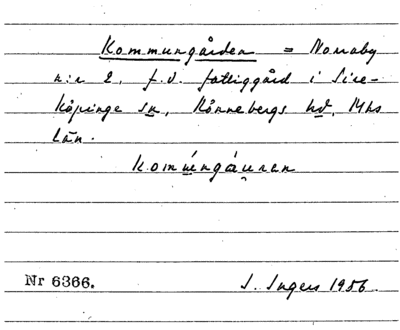 Kommungården = Norraby
n:r 2, f.d. fattiggård i Sire-
köpinge sn, Rönnebergs hd, Mhs
län.
Nr 6366.
I. Ingers 1956.